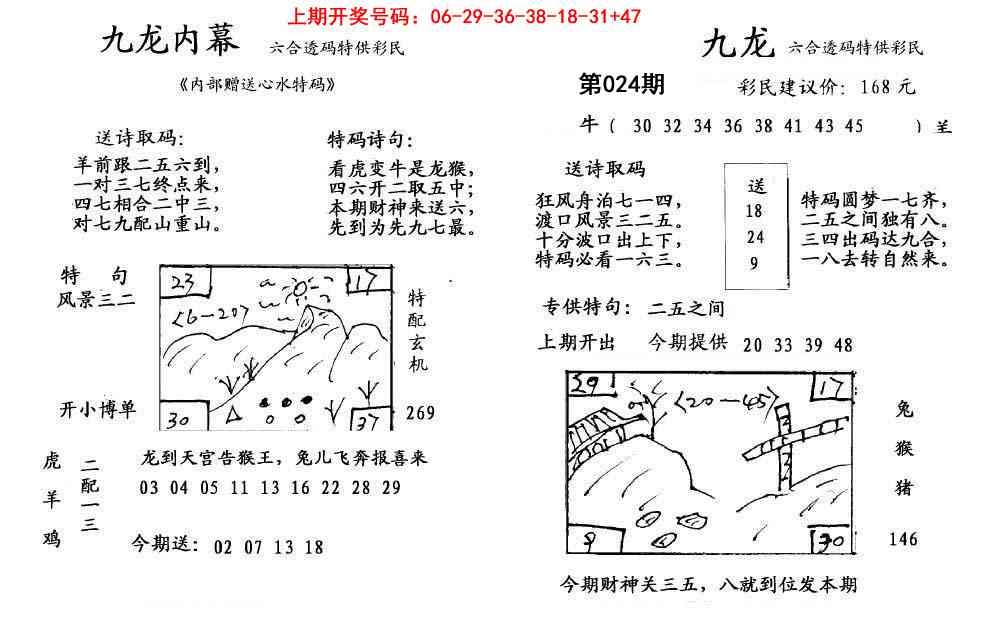 上期开奖号码：06-29-36-38-18-31+47
九龙内幕 六合透码特供彩民
《内部赠送心水特码》
送诗取码：
羊前跟二五六到，
一对三七终点来，
四七相合二中三，
对七九配山重山。
特码诗句：
看虎变牛是龙猴，
四六开二取五中；
本期财神来送六，
先到为先九七最。
特 句
风景三二
开小博单
23
17
<6-20>
30
37
特配玄机
269
虎羊鸡
二配一三
龙到天宫告猴王，兔儿飞奔报喜来
03 04 05 11 13 16 22 28 29
今期送：02 07 13 18
九龙 六合透码特供彩民
第024期 彩民建议价：168元
牛（30 32 34 36 38 41 43 45 ）羊
送诗取码
狂风舟泊七一四，
渡口风景三二五。
十分波口出上下，
特码必看一六三。
送
18
24
9
特码圆梦一七齐，
二五之间独有八。
三四出码达九合，
一八去转自然来。
专供特句：二五之间
上期开出 今期提供 20 33 39 48
29
17
<20-45>
9
30
兔
猴
猪
146
今期财神关三五，八就到位发本期